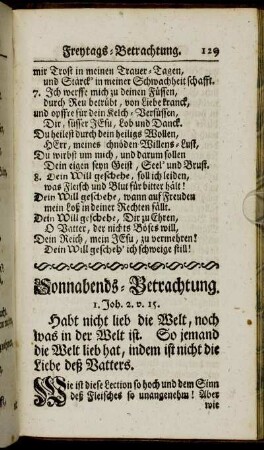 Freytags-Betrachtung. 129
mir Trost in meinen Trauer-Tagen,
und Stärck' in meiner Schwachheit schafft.
7. Ich werffe mich zu deinen Füssen,
durch Reu betrübt, von Liebe kranck,
und opffre für dein Kelch-Versüssen,
Dir, süsser JEsu, Lob und Danck.
Du heilest durch dein heiligs Wollen,
HErr, meines schnöden Willens-Lust,
Du wirbst um mich, und darum sollen
Dein eigen seyn Geist, Seel' und Brust.
8. Dein Will geschehe, soll ich leiden,
was Fleisch und Blut für bitter hält!
Dein Will geschehe, wann auf Freuden
mein Loß in deiner Rechten fällt.
Dein Will geschehe, Dir zu Ehren,
O Vatter, der nichts Böses will,
Dein Reich, mein JEsu, zu vermehren!
Dein Will gescheh' ich schweige still!
Sonnabends-Betrachtung.
1. Joh. 2. v. 15.
Habt nicht lieb die Welt, noch
was in der Welt ist. So jemand
die Welt lieb hat, indem ist nicht die
Liebe deß Vatters.
Wie ist diese Lection so hoch und dem Sinn
deß Fleisches so unangenehm! Aber
wie